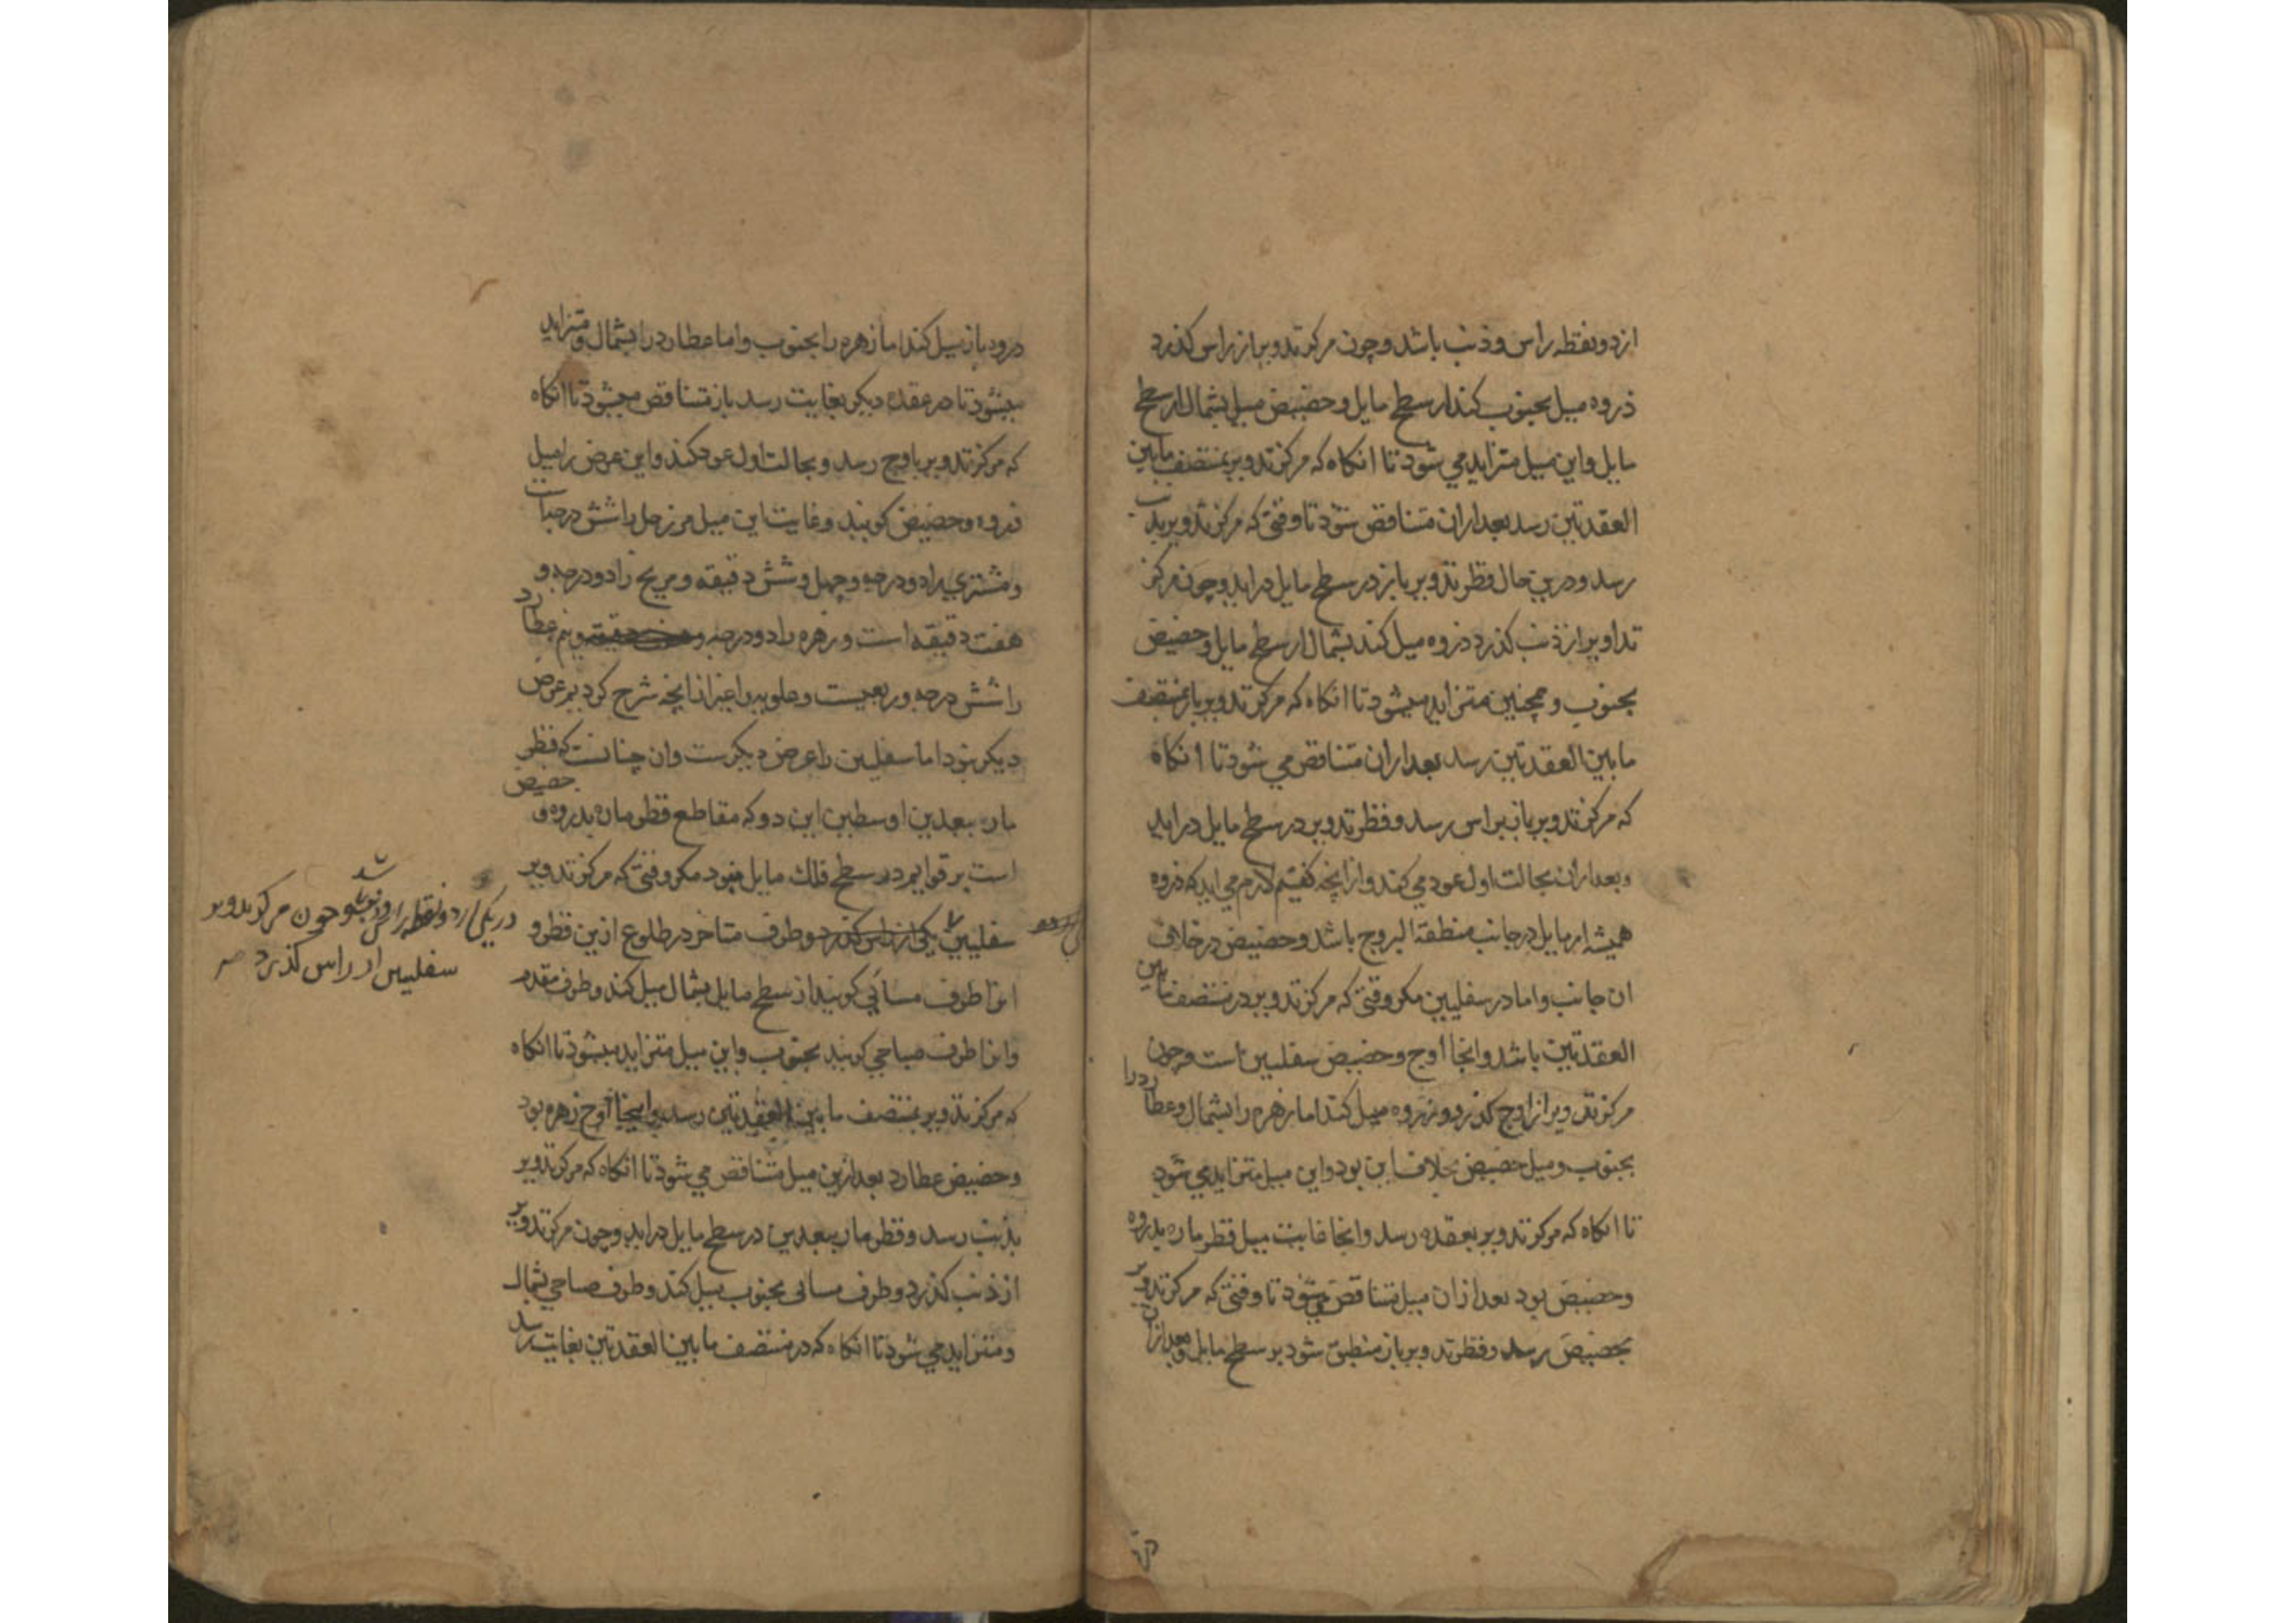 از دو نقطه راس و ذنب باشد و چون مرکز تدویر از راس کذرد
ذروه میل بجنوب کند از سطح مایل و حضیض میل بشمال از سطح
مایل و این میل متزاید می شود تا انکاه که مرکز تدویر بمنتصف مابین
العقدتین رسد بعد ازان متناقض شود تا وقتی که مرکز تدویر بذنب
رسد و درین حال قطر تدویر باز در سطح مایل دراید و چون مرکز
تداویر از ذنب کذرد ذروه میل کند بشمال از سطح مایل و حضیض
بجنوب و همچنین متزاید میشود تا انکاه که مرکز تدویر باز بمنتصف
مابین العقدتین رسد بعد ازان متناقض می شود تا انکاه
که مرکز تدویر باز براس رسد و قطر تدویر در سطح مایل دراید
و بعد ازان بحالت اول عود می کند و از انچه کفتیم لازم می اید که ذروه
همیشه از مایل در جانب منطقة البروج باشد و حضیض در خلاف
ان جانب و اما در سفلیین مکر وقتی که مرکز تدویر در منتصف مابین
العقدتین باشد و انجا اوج و حضیض سفلیین است و چون
مرکز تدویر از اوج کذرد ذروه میل کند اما زهره را بشمال و عطارد را
بجنوب و میل حضیض بخلاف این بود و این میل متزاید می شود
تا انکاه که مرکز تدویر بعقده رسد و انجا غایت میل قطر ماره بذروه
و حضیض بود بعد ازان میل متناقض میشود تا وقتی که مرکز تدویر
بحضیض رسد و قطر تدویر باز منطبق شود بر سطح مایل و بعد ازان
ذروه باز میل کند اما زهره را بجنوب و اما عطارد را بشمال و متزاید
میشود تا در عقده دیکر بغایت رسد باز متناقض میشود تا انکاه
که مرکز تدویر باوج رسد و بحالت اول عود کند و این عرض را میل
ذروه و حضیض کویند و غایت این میل مر زحل را شش درجات
و مشتری را دو درجه و چهل و شش دقیقه و مریخ را دو درجه و
هفت دقیقه است و زهره را دو درجه و نیم عطارد
را شش درجه و ربعیست و علویه را غیر از انچه شرح کردیم عرض
دیکر نبود اما سفلیین را عرض دیکرست و ان چنانست که قطر
مار ببعدین اوسطین این دو که مقاطع قطر ماره بذروه و حضیض
است بر قوایم در سطح فلک مایل نبود مکر وقتی که مرکز تدویر
سفلیین یکی از راس کذرد و طرف متاخر در طلوع ازین قطر و
انرا طرف مسائی کویند از سطح مایل بشمال میل کند و طرف مقدم
و انرا طرف صباحی کویند بجنوب و این میل متزاید میشود تا انکاه
که مرکز تدویر بمنتصف مابین العقدتین رسد و اینجا اوج زهره بود
و حضیض عطارد بعد ازین میل متناقض می شود تا انکاه که مرکز تدویر
بذنب رسد و قطر مار ببعدین در سطح مایل دراید و چون مرکز تدویر
از ذنب کذرد و طرف مسائی بجنوب میل کند و طرف صباحی بشمال
و متزاید می شود تا انکاه که در منتصف مابین العقدتین بغایت رسد
در یکی از دو نقطه راس و ذنب باشد و چون مرکز تدویر
سفلیین از راس کذرد صح